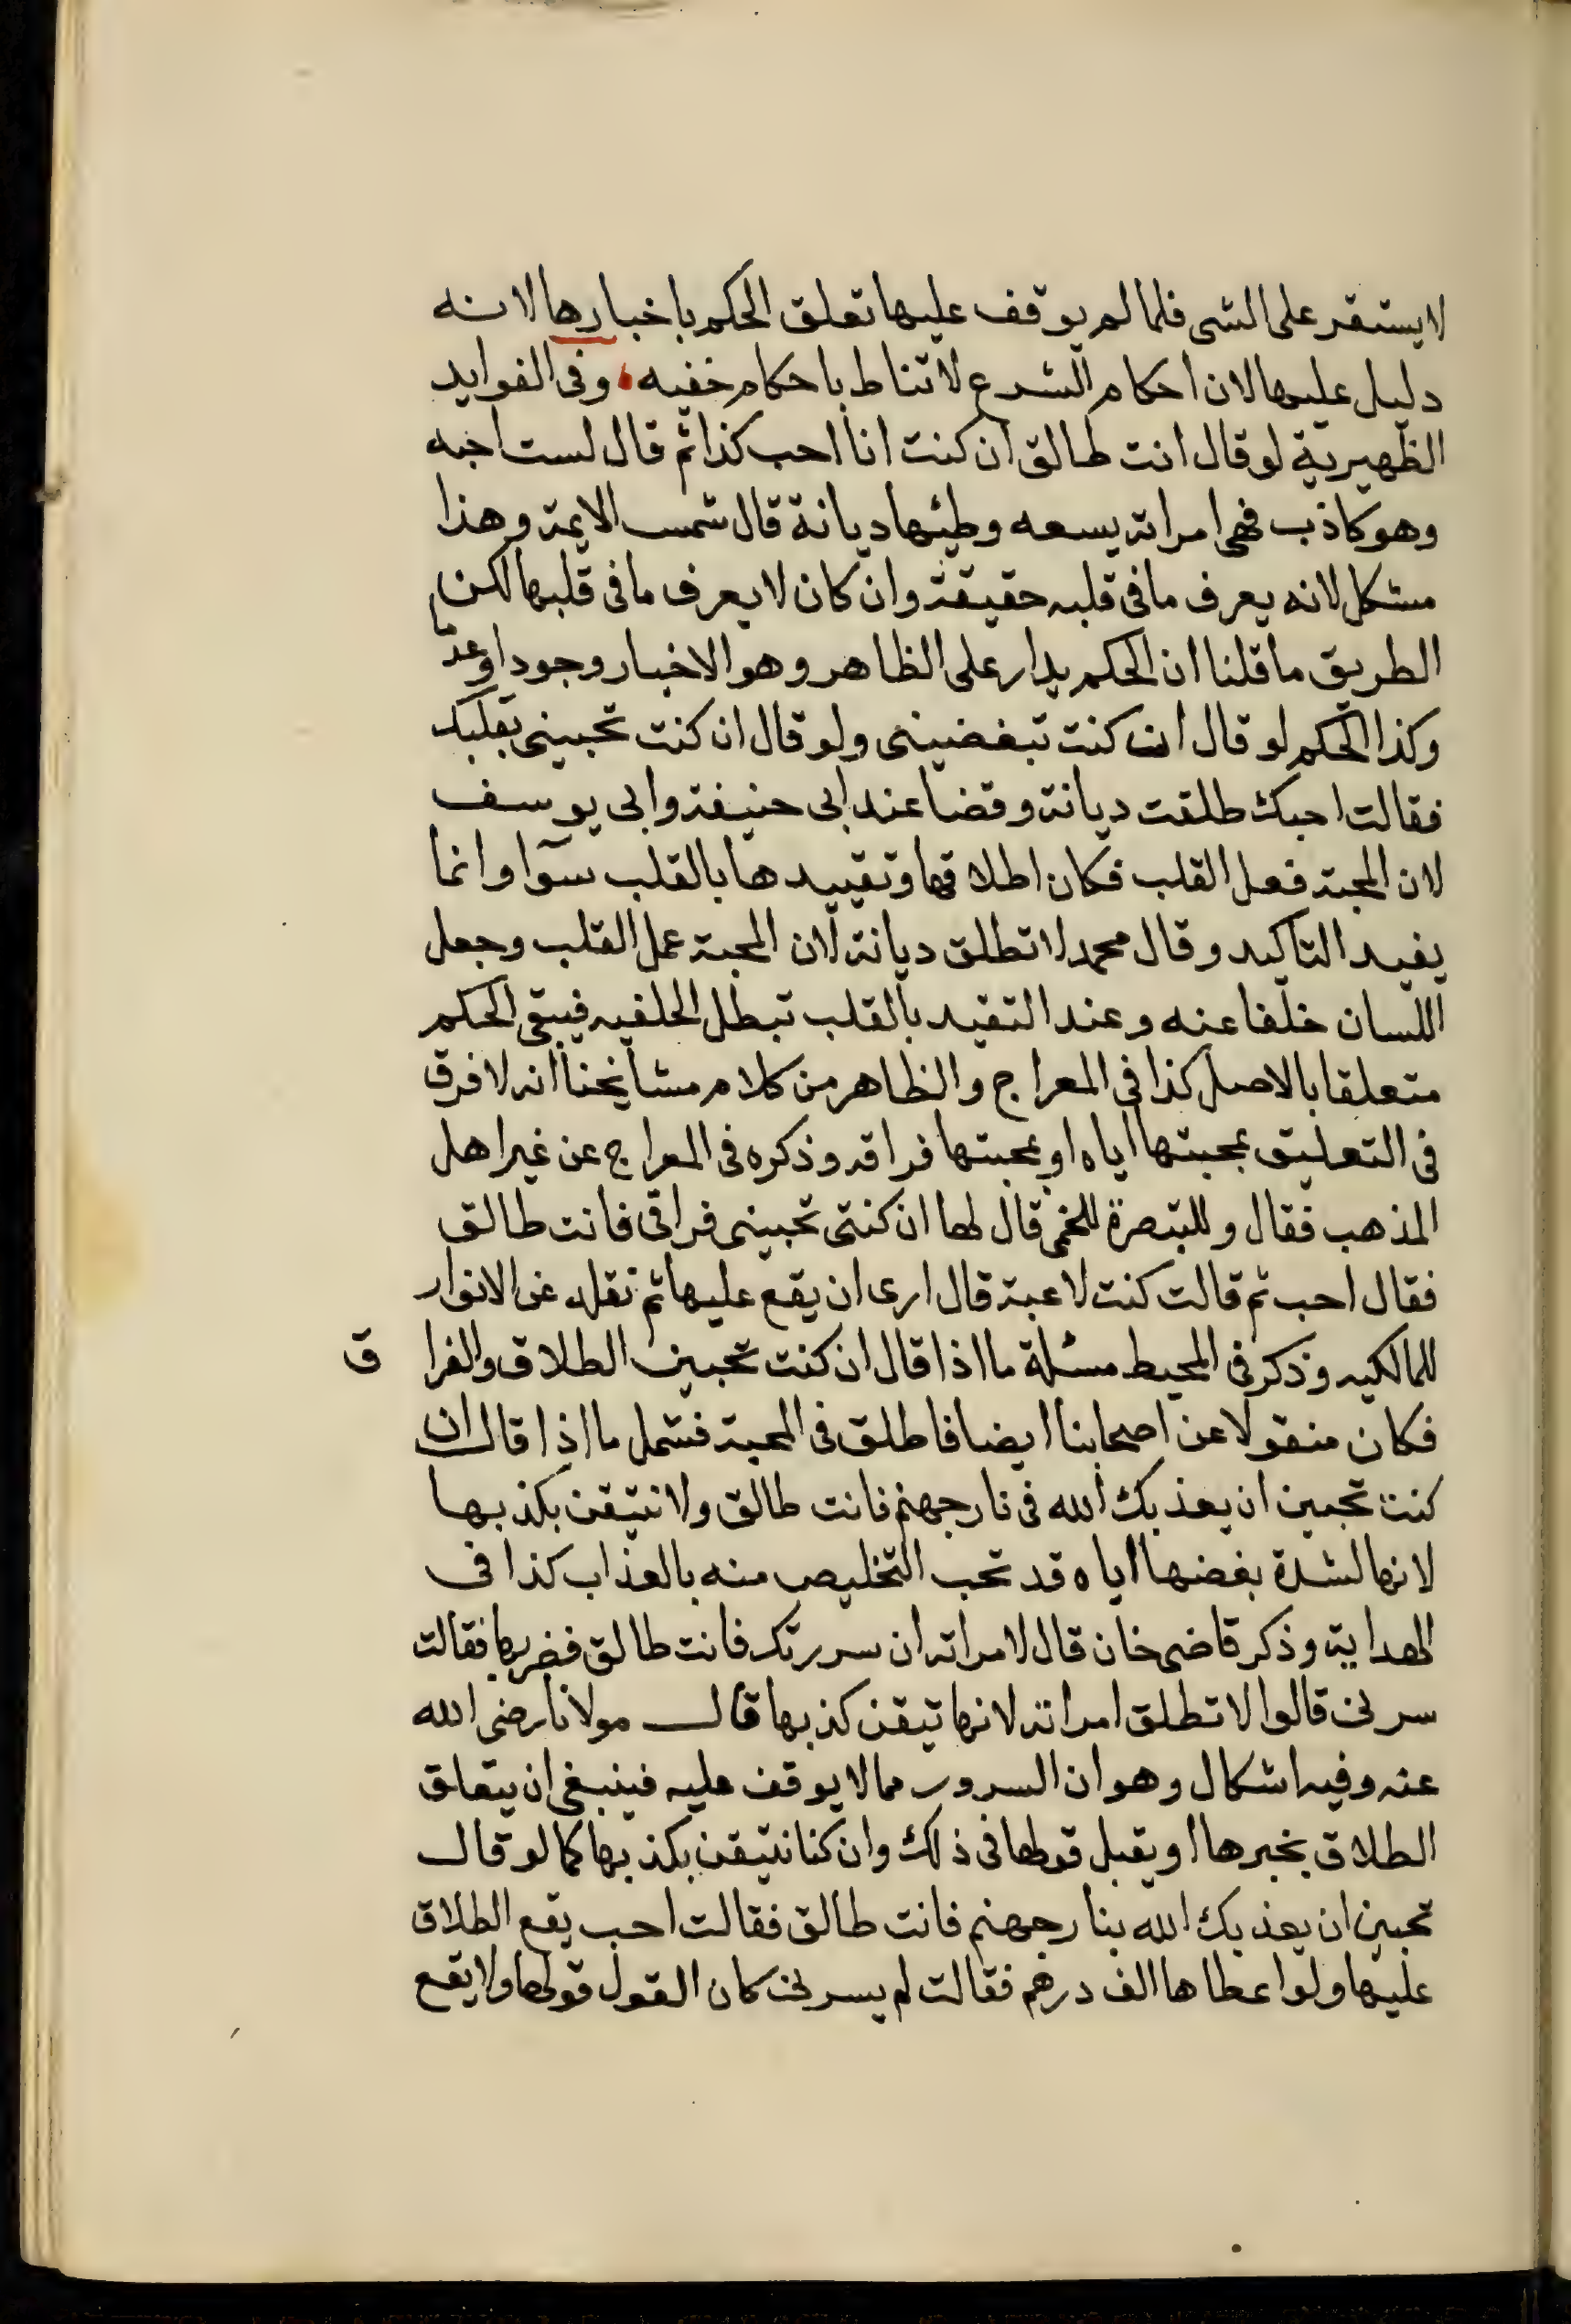 لا يستقر على الشى فلما لم يوقف عليها تعلق الحكم باخبارها لانه
دليل عليها لان احكام الشرع لا تناط باحكام خفيه وفى الفوايد
الظهيرية لو قال انت طالق ان كنت انا احب كذا ثم قال لست احبه
وهو كاذب فهى امراته يسعه وطيئها ديانة قال شمس الايمة وهذا
مشكل لانه يعرف ما فى قلبه حقيقة وان كان لا يعرف ما فى قلبها لكن
الطريق ما قلنا ان الحكم يدار على الظاهر وهو الاخبار وجودا وعد
وكذا الحكم لو قال ان كنت تبغضينى ولو قال ان كنت تحبينى بقلبك
فقالت احبك طلقت ديانة وقضا عند ابى حنيفة وابى يوسف
لان المحبة فعل القلب فكان اطلاقها وتقييدها بالقلب سوآ وانما
يفيد التاكيد وقال محمد لا تطلق ديانة لان المحبة عمل القلب وجعل
اللسان خلفا عنه وعند التقيد بالقلب تبطل الخلفيه فيبقى الحكم
متعلقا بالاصل كذا فى المعراج والظاهر من كلام مشايخنا انه لا فرق
فى التعليق بمحبتها اياه او بمحبتها فراقه وذكره فى المعراج عن غير اهل
المذهب فقال وللبتصرة للخمى قال لها ان كنتى تحبينى فراقى فانت طالق
فقال احب ثم قالت كنت لاعبة قال ارى ان يقع عليها ثم نقله عن الانوار
للمالكيه وذكر فى المحيط مسئلة ما اذا قال ان كنت تحبين الطلاق والفرا ق
فكان منقولا عن اصحابنا ايضا فاطلق فى المحبة فشمل ما اذا قال ان
كنت تحبين ان يعذبك الله فى نار جهنم فانت طالق ولا نتيقن بكذبها
لانها لشدة بغضها اياه قد تحب التخليص منه بالعذاب كذا فى
الهداية وذكر قاضى خان قال لامراته ان سررتك فانت طالق فضربها فقالت
سرنى قالوا لا تطلق امراته لانها تيقن كذبها قال مولانا رضى الله
عنه وفيه اشكال وهو ان السرور مما لا يوقف عليه فينبغى ان يتعلق
الطلاق بخبرها او يقبل قولها فى ذلك وان كنا نتيقن بكذبها كما لو قال
تحبين ان يعذبك الله بنار جهنم فانت طالق فقالت احب يقع الطلاق
عليها ولو اعطاها الف درهم فقالت لم يسرنى كان القول قولها ولا يقع